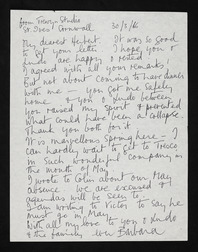 from Trewyn Studio
St. Ives Cornwall 30/3/
My dearest Herbert. It was so good
to get your letter. I hope you &
are happy & rested
I agreed with all your remarks,
But not about coming to hear dances
with me — you got me safely
home & you & Ludo between
you raised my spirit & prevented
what could have been a collapse.
Thank you both for it
It is marvellous Spring here — I
can hardly wait to get to Tresco
in such wonderful company in
the month of May
I wrote to Salm about our May
absence we are excused &
agendas will be sent to
I am writing to Victor to say he
must go in May.
With all my love to you & Ludo
& the family ever Barbara